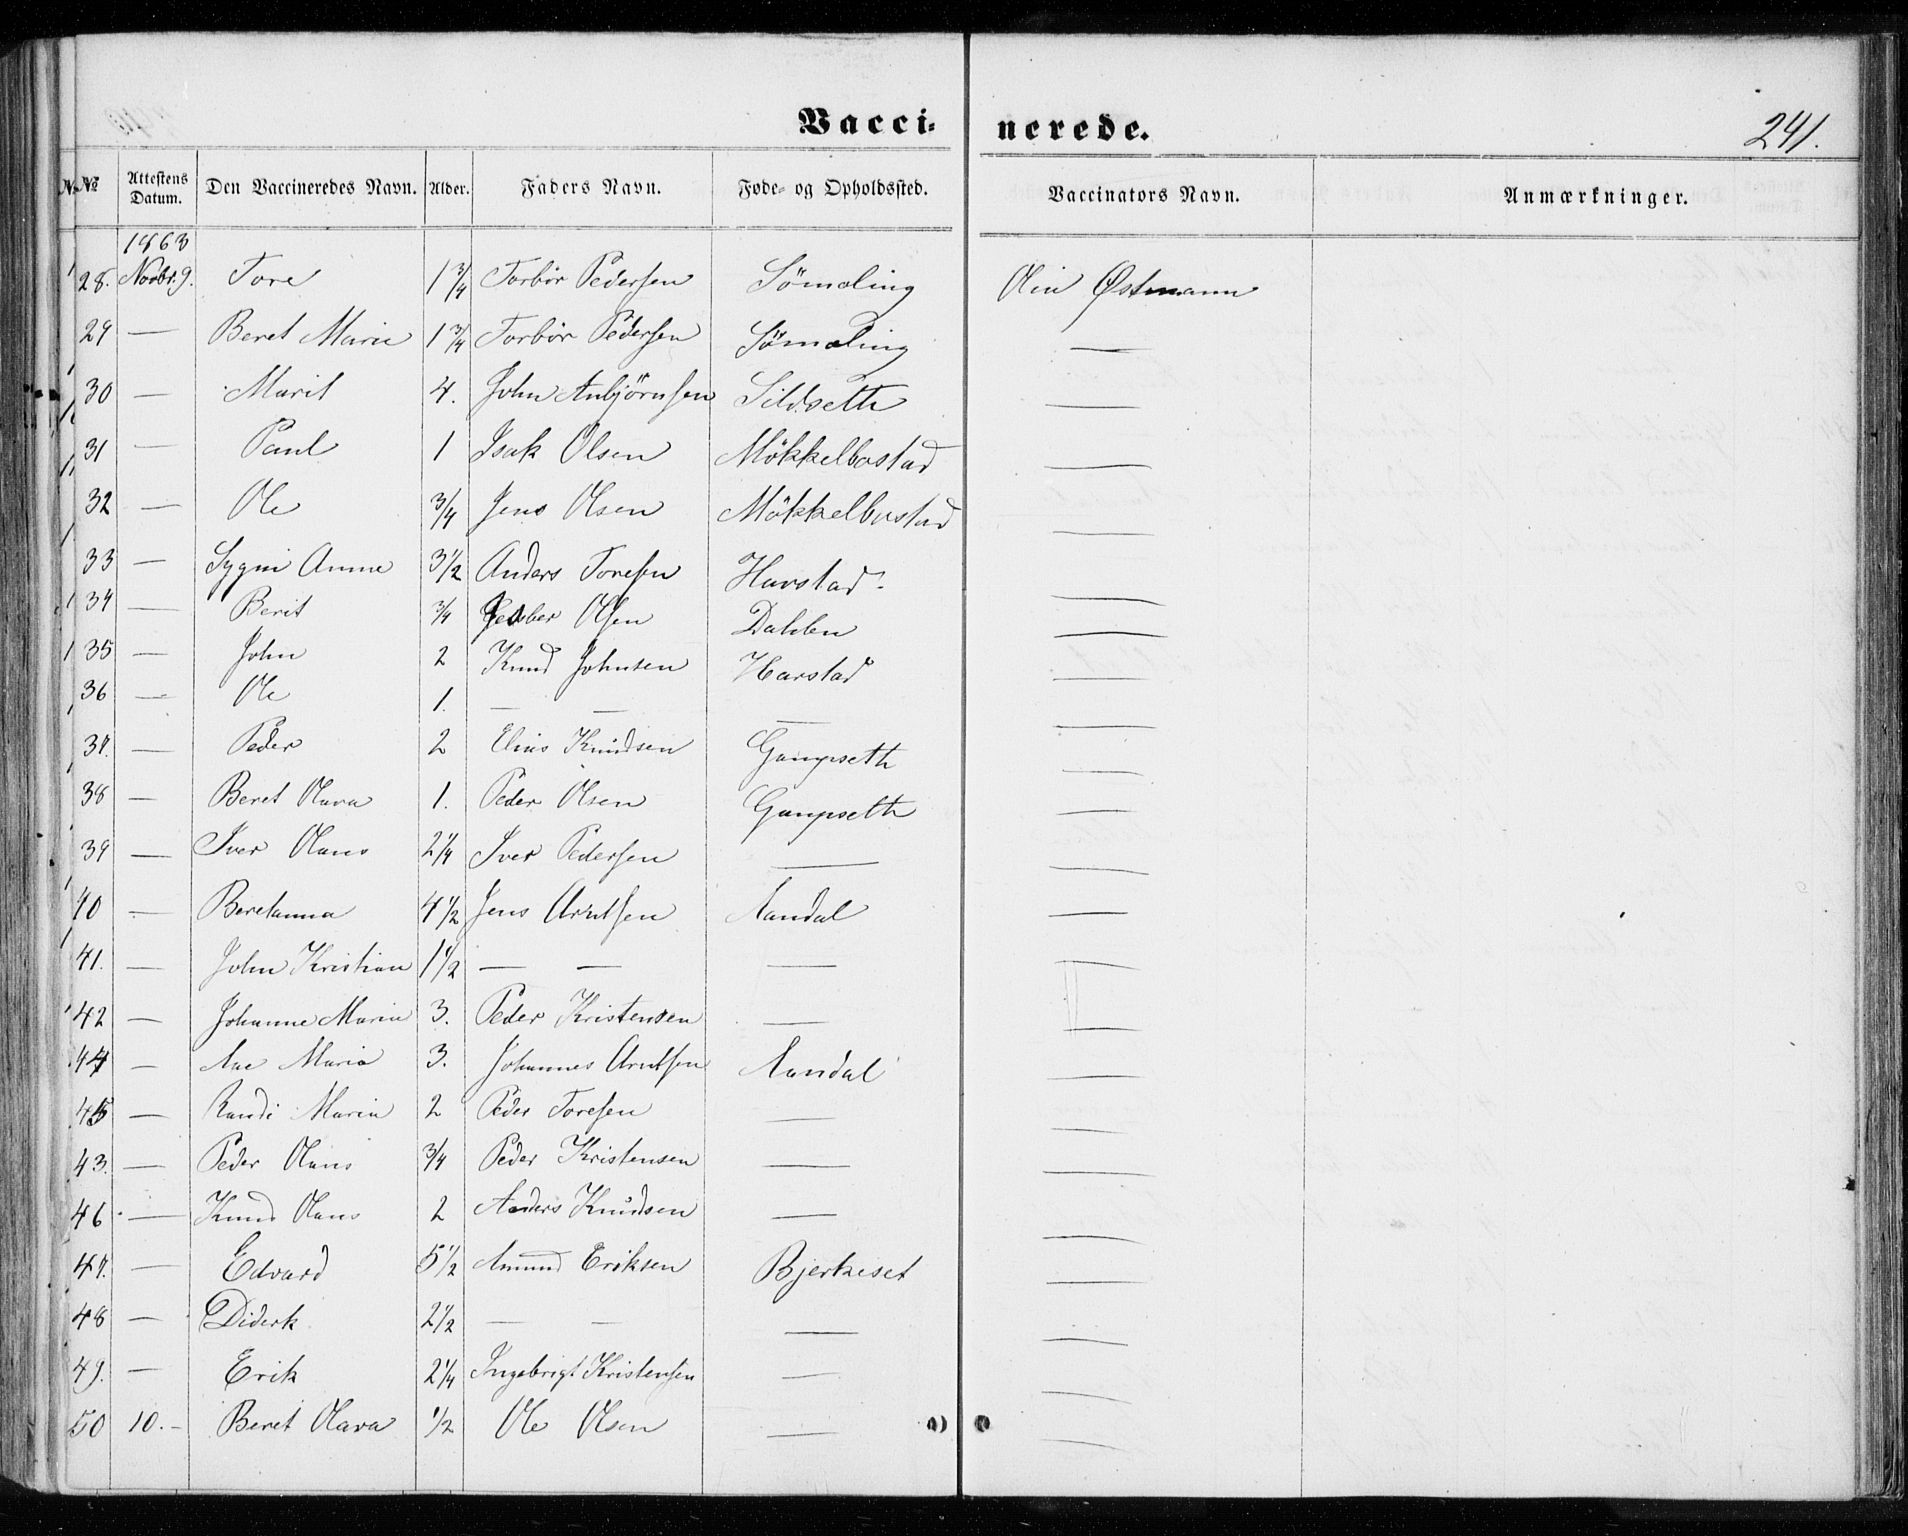 Vacci- nerede. 241.
№ Attestens Datum. Den Vaccineredes Navn. Alder. Faders Navn. Føde- og Opholdssted. Vaccinators Navn. Anmærkninger.
1863
28. Novbr. 9. Tore 1 3/4 Torbør Pedersen Sömöling Østmann
29 — Beret Marie 1 3/4 Torbör Pedersen Sömöling —
30 — Marit 4. John Anbjörnsen Sildseth —
31 — Paul 1 Isak Olsen Mökkelbostad —
32 — Ole 3/4 Jens Olsen Mökkelbostad —
33 — Anne 3 1/2 Anders Toresen Havstad —
34 — Berit 3/4 Olsen Dahlen —
35 — John 2 Knud Johnsen Harstad —
36 — Ole 1. — — — —
37. — Peder 2 Elias Knudsen Gampseth —
38 — Beret Olava 1. Peder Olsen Gampseth —
39 — Iver Olaus 2 1/4 Iver Pedersen — —
40 — Beretanna 4 1/2 Jens Arntsen Aandal —
41. — John Kristian 1 1/2 — — — —
42 — Johanne Maria 3. Peder Kristensen — —
44 — Ane Maria 3. Johannes Arntsen Aandal —
45 — Randi Maria 2 Peder Toresen — —
43. — Peder Olaus 3/4 Peder Kristensen — —
46 — Knud Olaus 2 Anders Knudsen — —
47. — Edvard 5 1/2 Amund Eriksen Bjerkeset —
48 — Diderk 2 1/2 — — — —
49. — Erik 2 1/4 Ingebrigt Kristensen — —
50 10. - Beret Olava 1/2 Ole Olsen — —